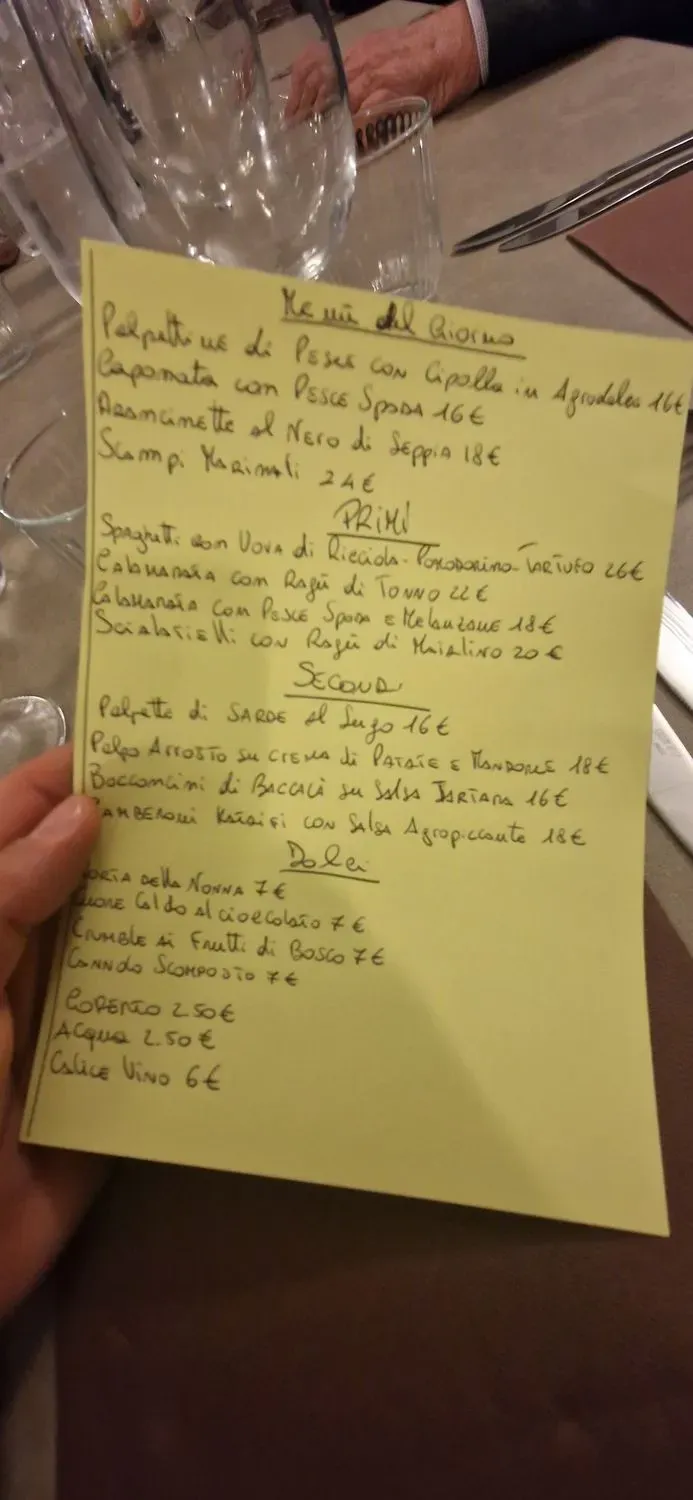 Menù del Giorno
Polpettine di Pesce con Cipolla in Agrodolce 16€
Caponata con Pesce Spada 16€
Arancinette al Nero di Seppia 18€
Scampi Marinati 24€
PRIMI
Spaghetti con Uova di Ricciola-Pomodorino-Tartufo 26€
Calamarata con Ragù di Tonno 22€
Calamarata con Pesce Spada e Melanzane 18€
Scialatielli con Ragù di Maialino 20€
SECONDI
Polpette di SARDE al Sugo 16€
Polpo Arrosto su crema di Patate e Mandorle 18€
Bocconcini di Baccalà su Salsa Tartara 16€
Gamberoni Kataifi con Salsa Agropiccante 18€
Dolci
Torta della Nonna 7€
Cuore Caldo al cioccolato 7€
Crumble ai Frutti di Bosco 7€
Cannolo Scomposto 7€
Coperto 2.50€
Acqua 2.50€
Calice Vino 6€